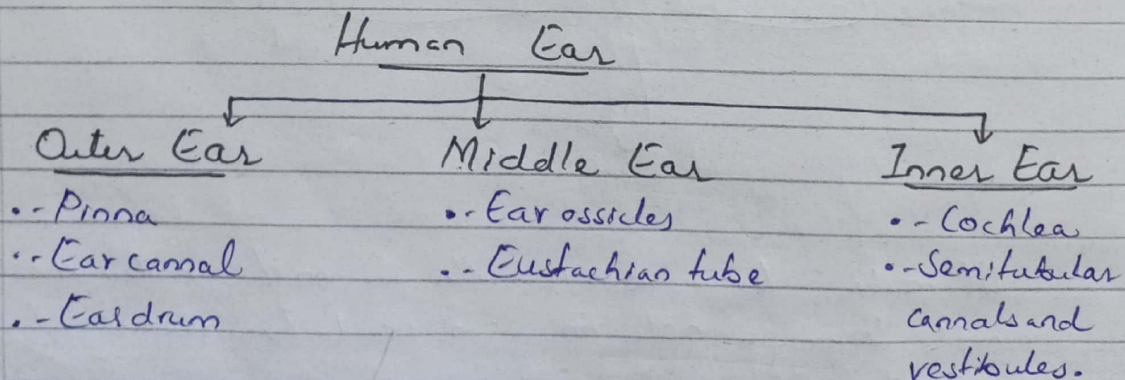 Human Ear
Outer Ear
.- Pinna
.- Ear cannal
.- Eardrum
Middle Ear
.- Ear ossicles
.- Eustachian tube
Inner Ear
.- Cochlea
.- Semitubular
cannals and
vestibules.